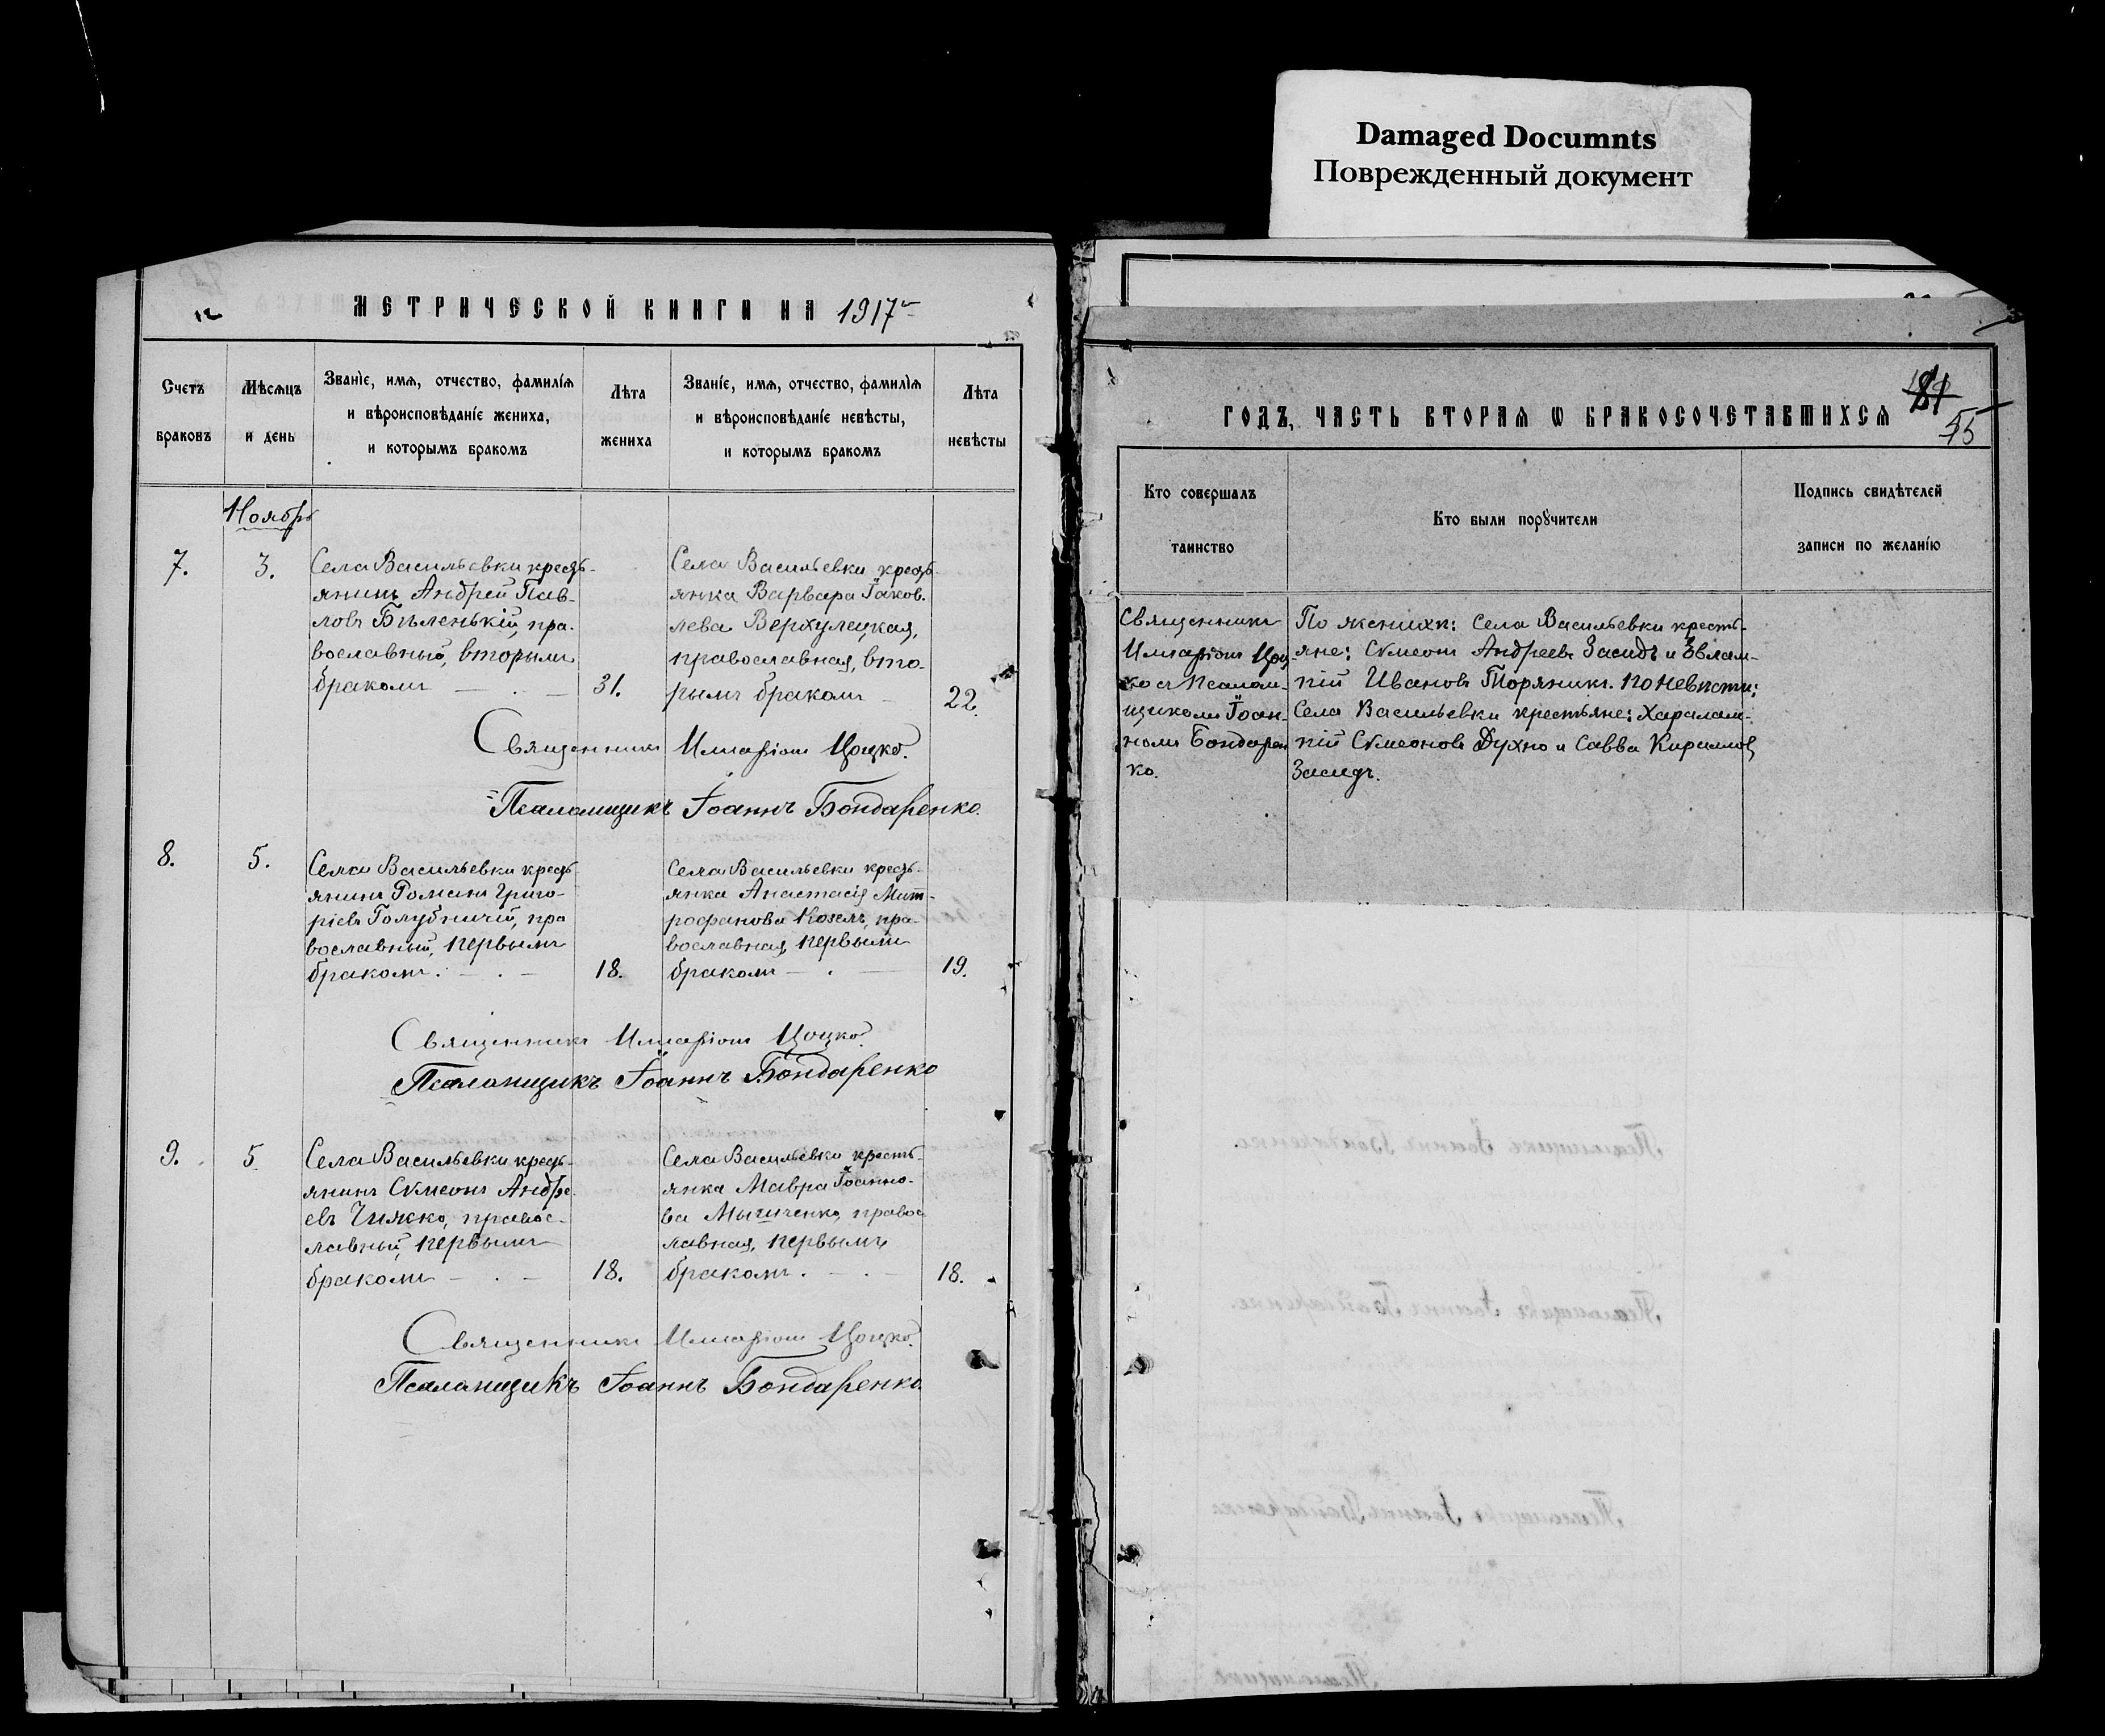 Damaged Documnts
Поврежденный документ
12
МЕТРИЧЕСКОЙ КНИГИ НА 1917
Счетъ браковъ
Мѣсяцъ и день
Званіе, имя, отчество, фамилія и вѣроисповѣданіе жениха, и которымъ бракомъ
Лѣта жениха
Званіе, имя, отчество, фамилія и вѣроисповѣданіе невѣсты, и которымъ бракомъ
Лѣта невѣсты
Ноябрь
7.
3.
Села Васильевки кресть-
янинъ Андрей Пав-
ловъ Бѣленькій, пра-
вославный, вторымъ
бракомъ
31.
Села Васильевки кресть-
янка Варвара Іаков-
лева Верхулецкая,
православная, вто-
рымъ бракомъ
22.
Священникъ Иларіонъ Цоцко.
Псаломщикъ Іоаннъ Бондаренко.
8.
5.
Села Васильевки кресть
янинъ Романъ Григо-
ріевъ Голубничій, пра
вославный, первымъ
бракомъ
18.
Села Васильевки кресть-
янка Анастасія Мит-
рофанова Козелъ, пра-
вославная, первымъ
бракомъ
19.
Священникъ Иларіонъ Цоцко.
Псаломщикъ Іоаннъ Бондаренко
9.
5
Села Васильевки кресть-
янинъ Сѵмеонъ Андре-
евъ Чижко, правос-
лавный, первымъ
бракомъ
18.
Села Васильевки кресть-
янка Мавра Іоанно-
ва Мычиченко, правос
лавная, первымъ
бракомъ.
18.
Священникъ Иларіонъ Цоцко.
Псаломщикъ Іоаннъ Бондаренко.
ГОДЪ, ЧАСТЬ ВТОРАЯ Ѡ БРАКОСОЧЕТАВШИХСЯ
81
55
Кто совершалъ таинство
Кто были порꙋчители
Подпись свидѣтелей записи по желанію
Священникъ
Иларіонъ Цоц-
ко съ псалом-
щикомъ Іоан-
номъ Бондарен
ко.
По женихѣ: села Васильевки кресть-
яне: Сѵмеонъ Андреевъ Засидъ и Евлам-
пій Ивановъ Торяникъ. По невѣстѣ:
Села Васильевки крестьяне: Харалам-
пій Сѵмеоновъ Духно и Савва Кирилловъ
Засидъ.